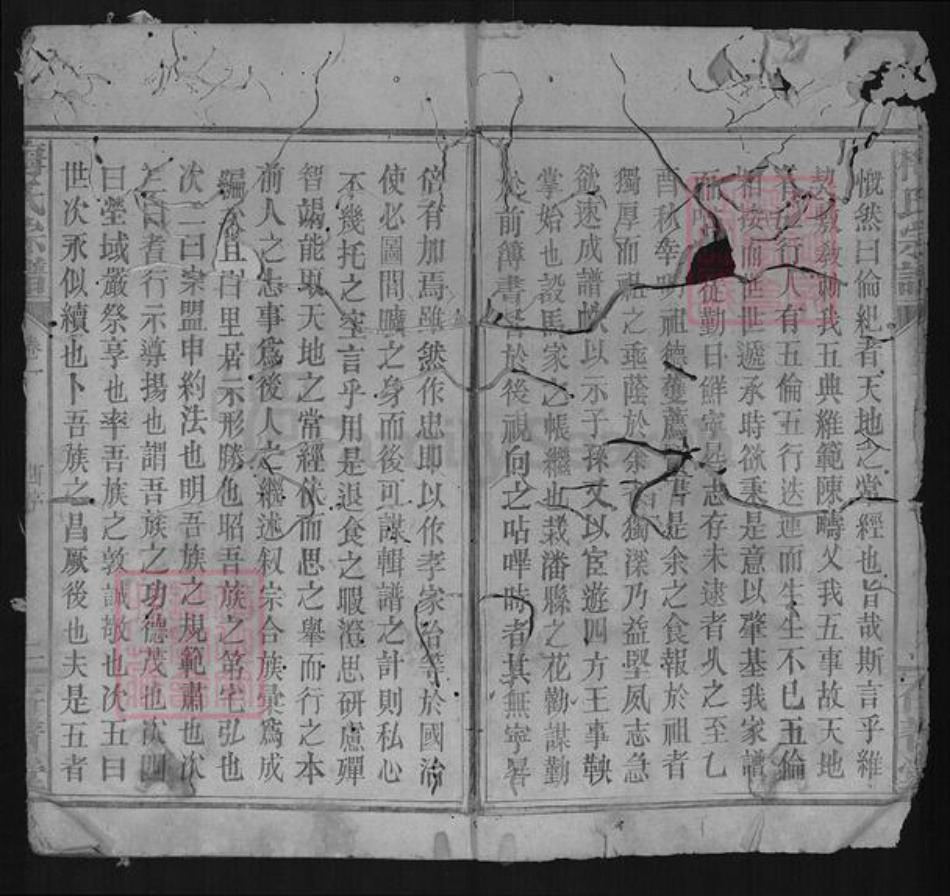 慨然曰倫紀者天地之常經也旨哉斯言乎維
敦我五典維範陳疇乂我五事故天地
有五行人有五倫五行迭運而生生不已五倫
相按而世世遞承時欲秉是意以肇基我家譜
從勤日鮮寧晷志存未逮者久之至乙
酉秋幸明祖德獲薦書是余之食報於祖者
獨厚而祖之垂蔭於余者獨深乃益堅夙志急
欲速成譜帙以示子孫又以宦遊四方王事鞅
掌始也設馬家之帳繼也栽潘縣之花勸課勤
於前簿書督於後視向之呫嗶時者其無寧晷
倍有加焉雖然作忠即以作孝家治等於國治
使必圖間曠之身而後可謀輯譜之計則私心
不幾托之空言乎用是退食之暇澄思研慮殫
智竭能取天地之常經依而思之舉而行之本
前人之志事為後人之繼述叙宗合族彙為成
編公且曰里居示形勝也昭吾族之第宅弘也
次二曰宗盟申約法也明吾族之規範肅也次
三曰耆行示導揚也謂吾族之功德茂也次四
曰塋域嚴祭享也率吾族之敦誠敬也次五曰
世次承似續也卜吾族之昌厥後也夫是五者
氏宗譜
卷一